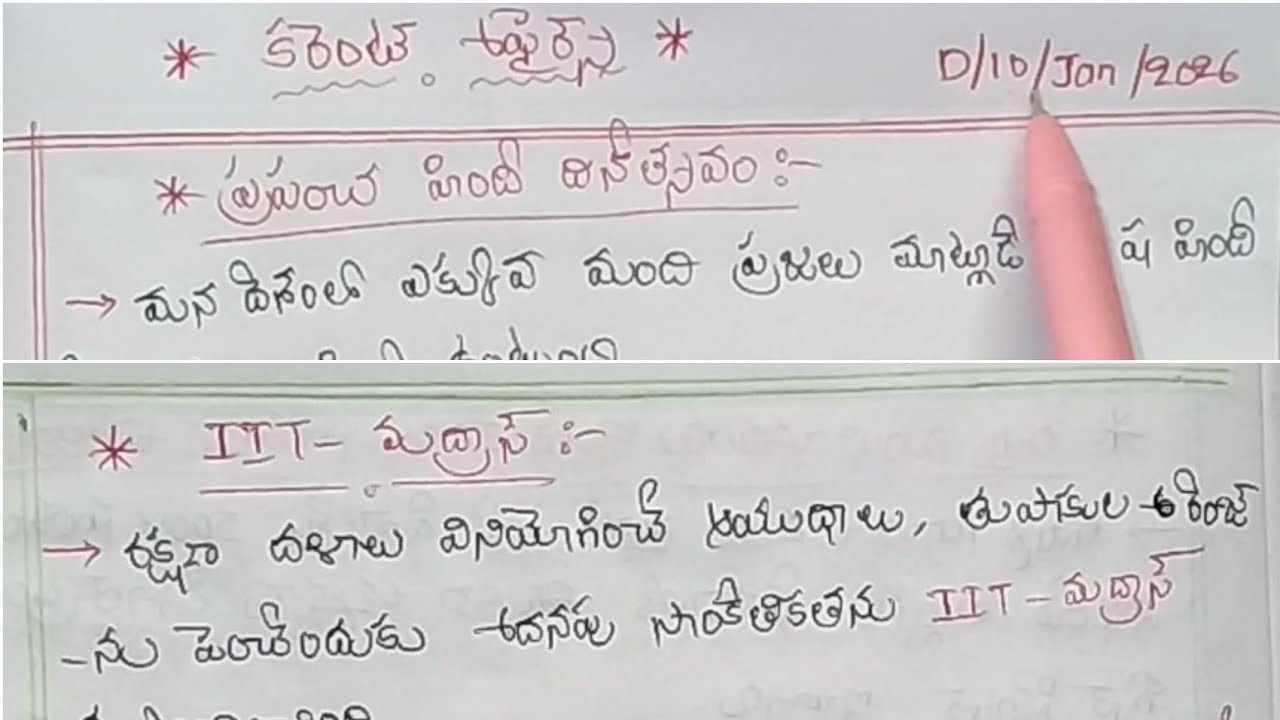 * కరెంట్ అఫైర్స్ *
D/10/Jan/2026
* ప్రపంచ హిందీ దినోత్సవం :-
→ మన దేశంలో ఎక్కువ మంది ప్రజలు మాట్లాడే ష హిందీ
* IIT - మద్రాస్ :-
→ రక్షణ దళాలు వినియోగించే ఆయుధాలు, తుపాకుల రేంజ్
- ను పెంచేందుకు అదనపు సాంకేతికతను IIT - మద్రాస్